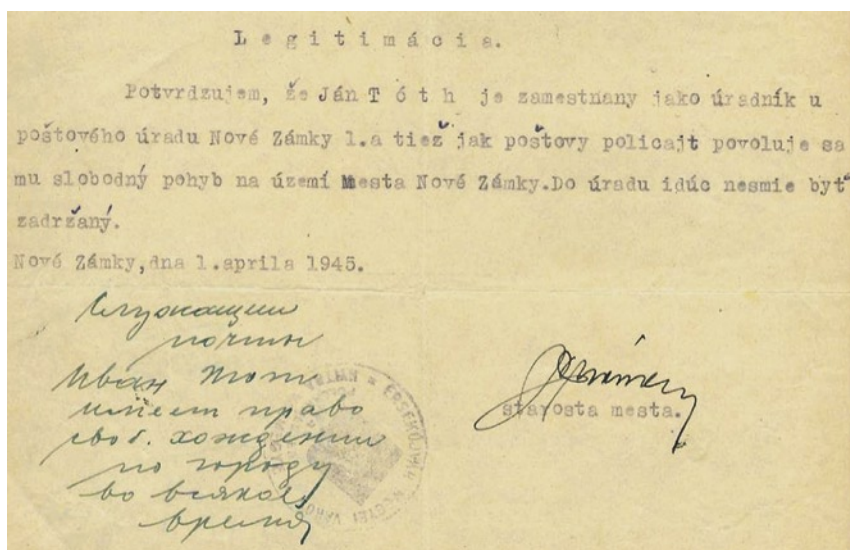 Legitimácia.
Potvrdzujem, že Ján Tóth je zamestnany jako úradník u
poštového úradu Nové Zámky 1.a tiež jak poštovy policajt povoluje sa
mu slobodný pohyb na území Mesta Nové Zámky.Do úradu idúc nesmie byť
zadržaný.
Nové Zámky,dna 1.aprila 1945.
Служащий
почты
Иван Тот
имеет право
своб. хождения
по городу
во всякое
время
starosta mesta.
ÉRSEKUJVÁR MEGYEI VÁROS